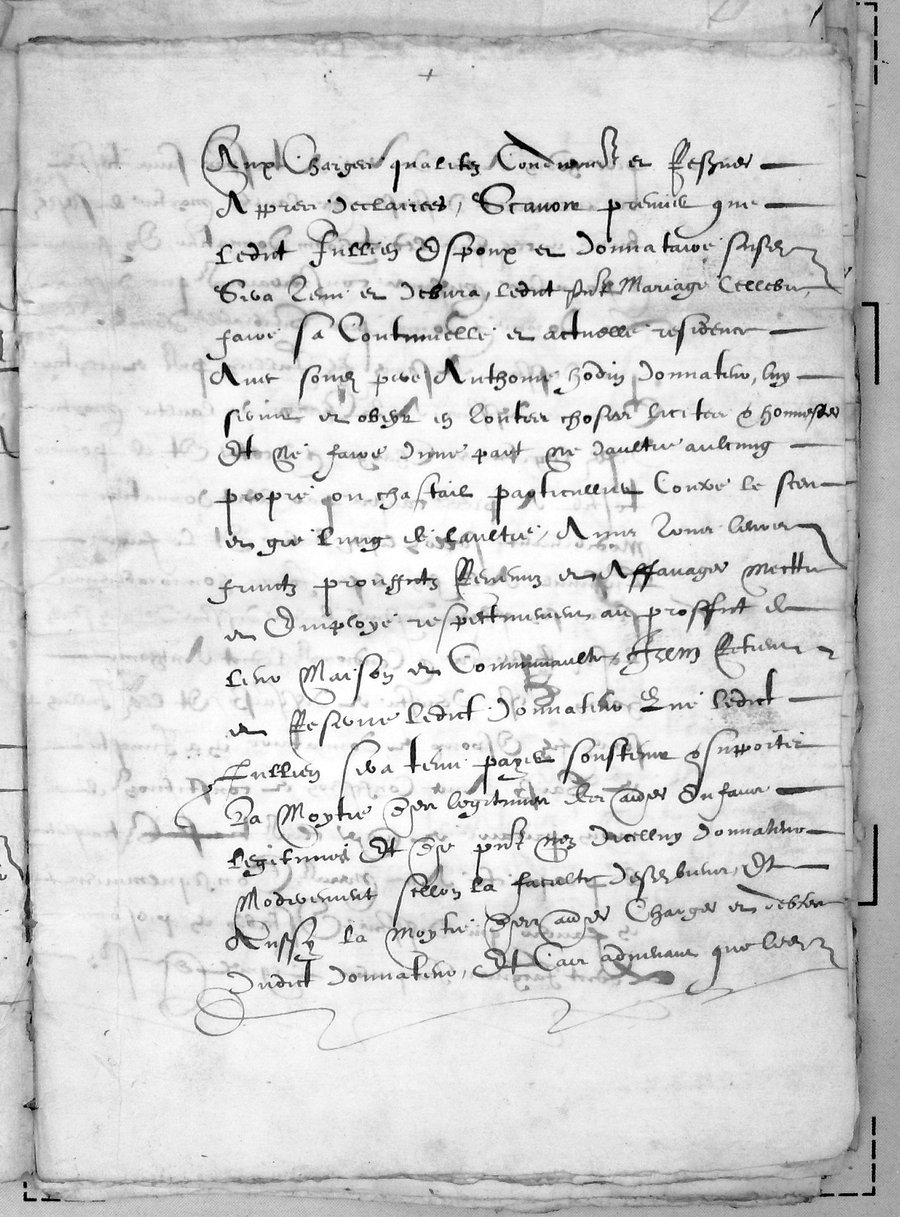 Aux Charges qualitez Conditions et Reserves
Appres declairees, Scavoir premier que
Ledict Jullien Espoux et donnataire susd
Sera Tenu et debvra, ledict pnt Mariage Cellebre,
faire sa Continuelle et actuelle residence
Avec sond pere Anthoine hodin donnateur, luy
servir et obeyr en toutes choses licites & honnestes
Et ne faire d'une part ne daultre aulcung
propre ou chastail particullier Contre le sceu
et gre lung de laultre, Ains Tous leurs
fruictz prouffictz Revenuz et Affanages mettre
et Employe respectivement au proffict de
leur Maison et Communaulte, Item Retient
et Reserve ledict donnateur Que ledict
Jullien sera tenu payer soustenir & supporter
La Moytie des legitimes des aultres Enfans
legitimes Et de pnt nez dicelluy donnateur
Moderement sellon la faculte de ses biens, Et
Aussy la Moytie des aultres Charges et debtes
Dudict donnateur, Et Cas advenant que lesd